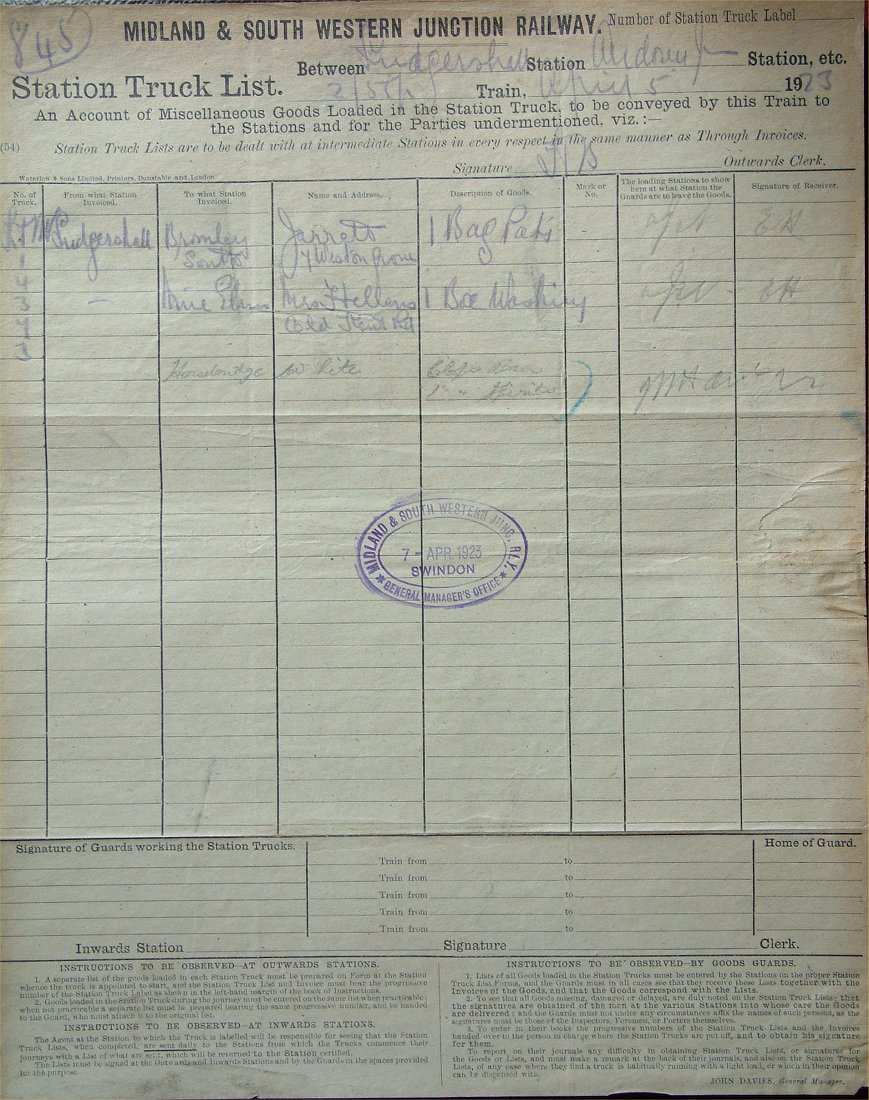 845
MIDLAND & SOUTH WESTERN JUNCTION RAILWAY. Number of Station Truck Label
Between Ludgershall Station Andover Jn Station, etc.
Station Truck List. Train, April 5 1923
An Account of Miscellaneous Goods Loaded in the Station Truck, to be conveyed by this Train to
the Stations and for the Parties undermentioned, viz.:—
(54) Station Truck Lists are to be dealt with at intermediate Stations in every respect in the same manner as Through Invoices.
Signature Outwards Clerk.
Waterlow & Sons Limited, Printers, Dunstable and London.
No. of Truck. From what Station Invoiced. To what Station Invoiced. Name and Address. Description of Goods. Mark or No. The loading Stations to show here at what Station the Guards are to leave the Goods. Signature of Receiver.
Ludgershall Bromley Jarrett 1 Bag
1 South 7 Weston Grove
4
3 Nine Elms Mrs 1 Box Washing EH
4 Old Kent Rd
3
White
MIDLAND & SOUTH WESTERN JUNC. RLY.
7 - APR. 1923
SWINDON
GENERAL MANAGER'S OFFICE
Signature of Guards working the Station Trucks. Home of Guard.
Train from to
Train from to
Train from to
Train from to
Train from to
Inwards Station Signature Clerk.
INSTRUCTIONS TO BE OBSERVED—AT OUTWARDS STATIONS.
1. A separate list of the goods loaded in each Station Truck must be prepared on Form at the Station
whence the truck is appointed to start, and the Station Truck List and Invoice must bear the progressive
number of the Station Truck Label as shown in the left-hand margin of the book of instructions.
2. Goods loaded in the Station Truck during the journey must be entered on the same list when practicable;
when not practicable a separate list must be prepared bearing the same progressive number, and be handed
to the Guard, who must attach it to the original list.
INSTRUCTIONS TO BE OBSERVED—AT INWARDS STATIONS.
The Agent at the Station to which the Truck is labelled will be responsible for seeing that the Station
Truck Lists, when completed, are sent daily to the Stations from which the Trucks commence their
journeys with a List of what are sent, which will be returned to the Station certified.
The Lists must be signed at the Outwards and Inwards Stations and by the Guards in the spaces provided
for the purpose.
INSTRUCTIONS TO BE OBSERVED—BY GOODS GUARDS.
1. Lists of all Goods loaded in the Station Trucks must be entered by the Stations on the proper Station
Truck List Forms, and the Guards must in all cases see that they receive these Lists together with the
Invoices of the Goods, and that the Goods correspond with the Lists.
2. To see that all Goods missing, damaged or delayed, are duly noted on the Station Truck Lists; that
the signatures are obtained of the men at the various Stations into whose care the Goods
are delivered; and the Guards must not under any circumstances affix the names of such persons, as the
signatures must be those of the Inspectors, Foremen, or Porters themselves.
3. To enter in their books the progressive numbers of the Station Truck Lists and the Invoices
handed over to the person in charge where the Station Trucks are put off, and to obtain his signature
for them.
To report on their journals any difficulty in obtaining Station Truck Lists, or signatures for
the Goods or Lists, and must make a remark at the back of their journals, and also on the Station Truck
Lists, of any case where they find a truck is habitually running with a light load, or which in their opinion
can be dispensed with.
JOHN DAVIES, General Manager.